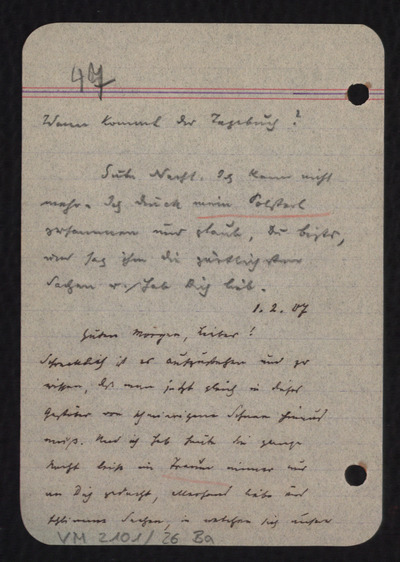 47
Wann kommt der Tagebuch?
Gute Nacht. Ich kann nicht
mehr. Ich drück mein Polsterl
zusammen und glaub, Du bists,
und sag ihm die zärtlichsten
Sachen u. hab Dich lieb.
1.2.07
Guten Morgen, Lieber!
Schrecklich ist es aufzustehen und zu
wissen, daß man jetzt gleich in dieses
Gestöber von Schnee hinaus
muß. Und ich hab heute die ganze
Nacht im Traum immer nur
an Dich gedacht, allerhand liebe und
schlimme Sachen, in welchen sich unser
VM 2101/26 Ba